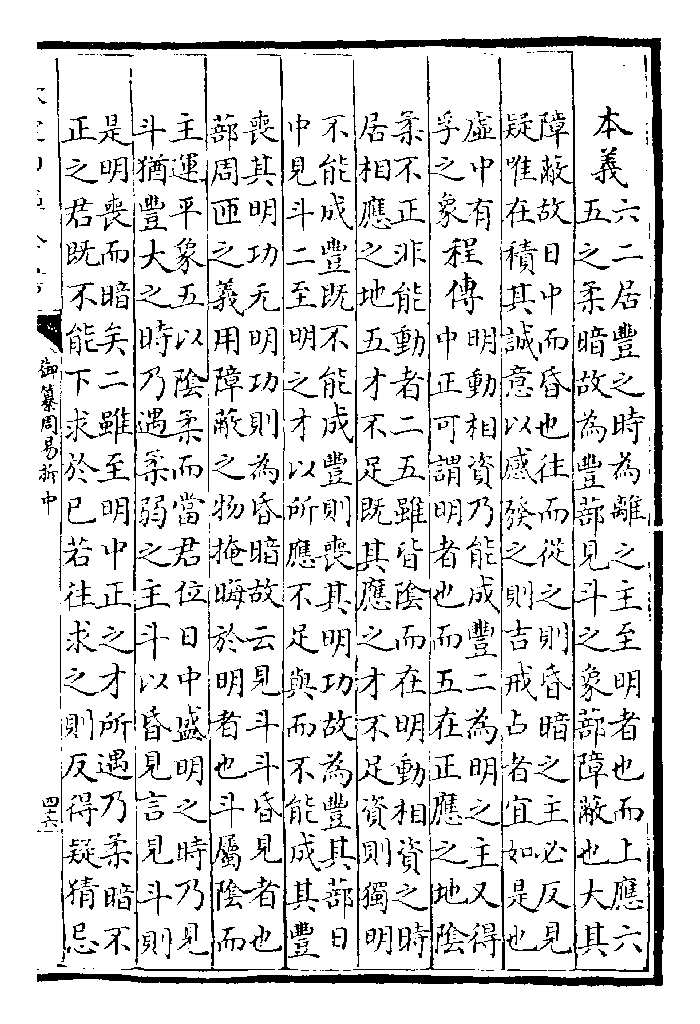 本義六二居豐之時為離之主至明者也而上應六
五之柔暗故為豐蔀見斗之象蔀障蔽也大其
障蔽故日中而昏也往而從之則昏暗之主必反見
疑唯在積其誠意以感發之則吉戒占者宜如是也
虛中有
孚之象
程傳明動相資乃能成豐二為明之主又得
中正可謂明者也而五在正應之地陰
柔不正非能動者二五雖皆陰而在明動相資之時
居相應之地五才不足既其應之才不足資則獨明
不能成豐既不能成豐則喪其明功故為豐其蔀日
中見斗二至明之才以所應不足與而不能成其豐
喪其明功无明功則為昏暗故云見斗斗昏見者也
蔀周匝之義用障蔽之物掩晦於明者也斗屬陰而
主運平象五以陰柔而當君位日中盛明之時乃見
斗猶豐大之時乃遇柔弱之主斗以昏見言見斗則
是明喪而暗矣二雖至明中正之才所遇乃柔暗不
正之君既不能下求於已若往求之則反得疑猜忌
御纂周易折中
四六